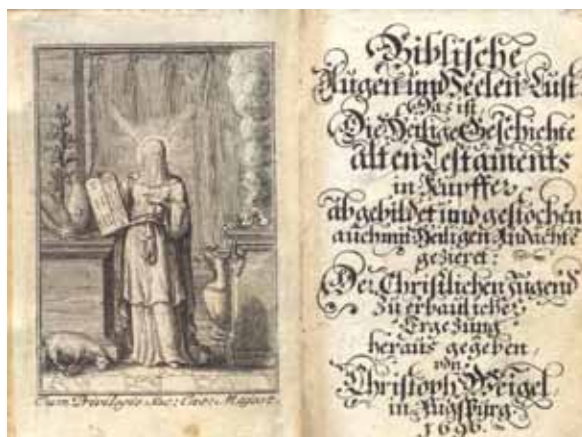 Cum Privilegio Sac: Cæs: Majest.
Biblische
Augen und Seelen Lust.
Das ist,
Die Heilige Geschichte
alten Testaments
in Kupffer,
abgebildet und gestochen
auch mit Heiligen Andachte
gezieret:
Der Christlichen Jugend
zu erbaulicher
Ergezung
heraus gegeben,
von
Christoph Weigel,
in Augspurg
1696.